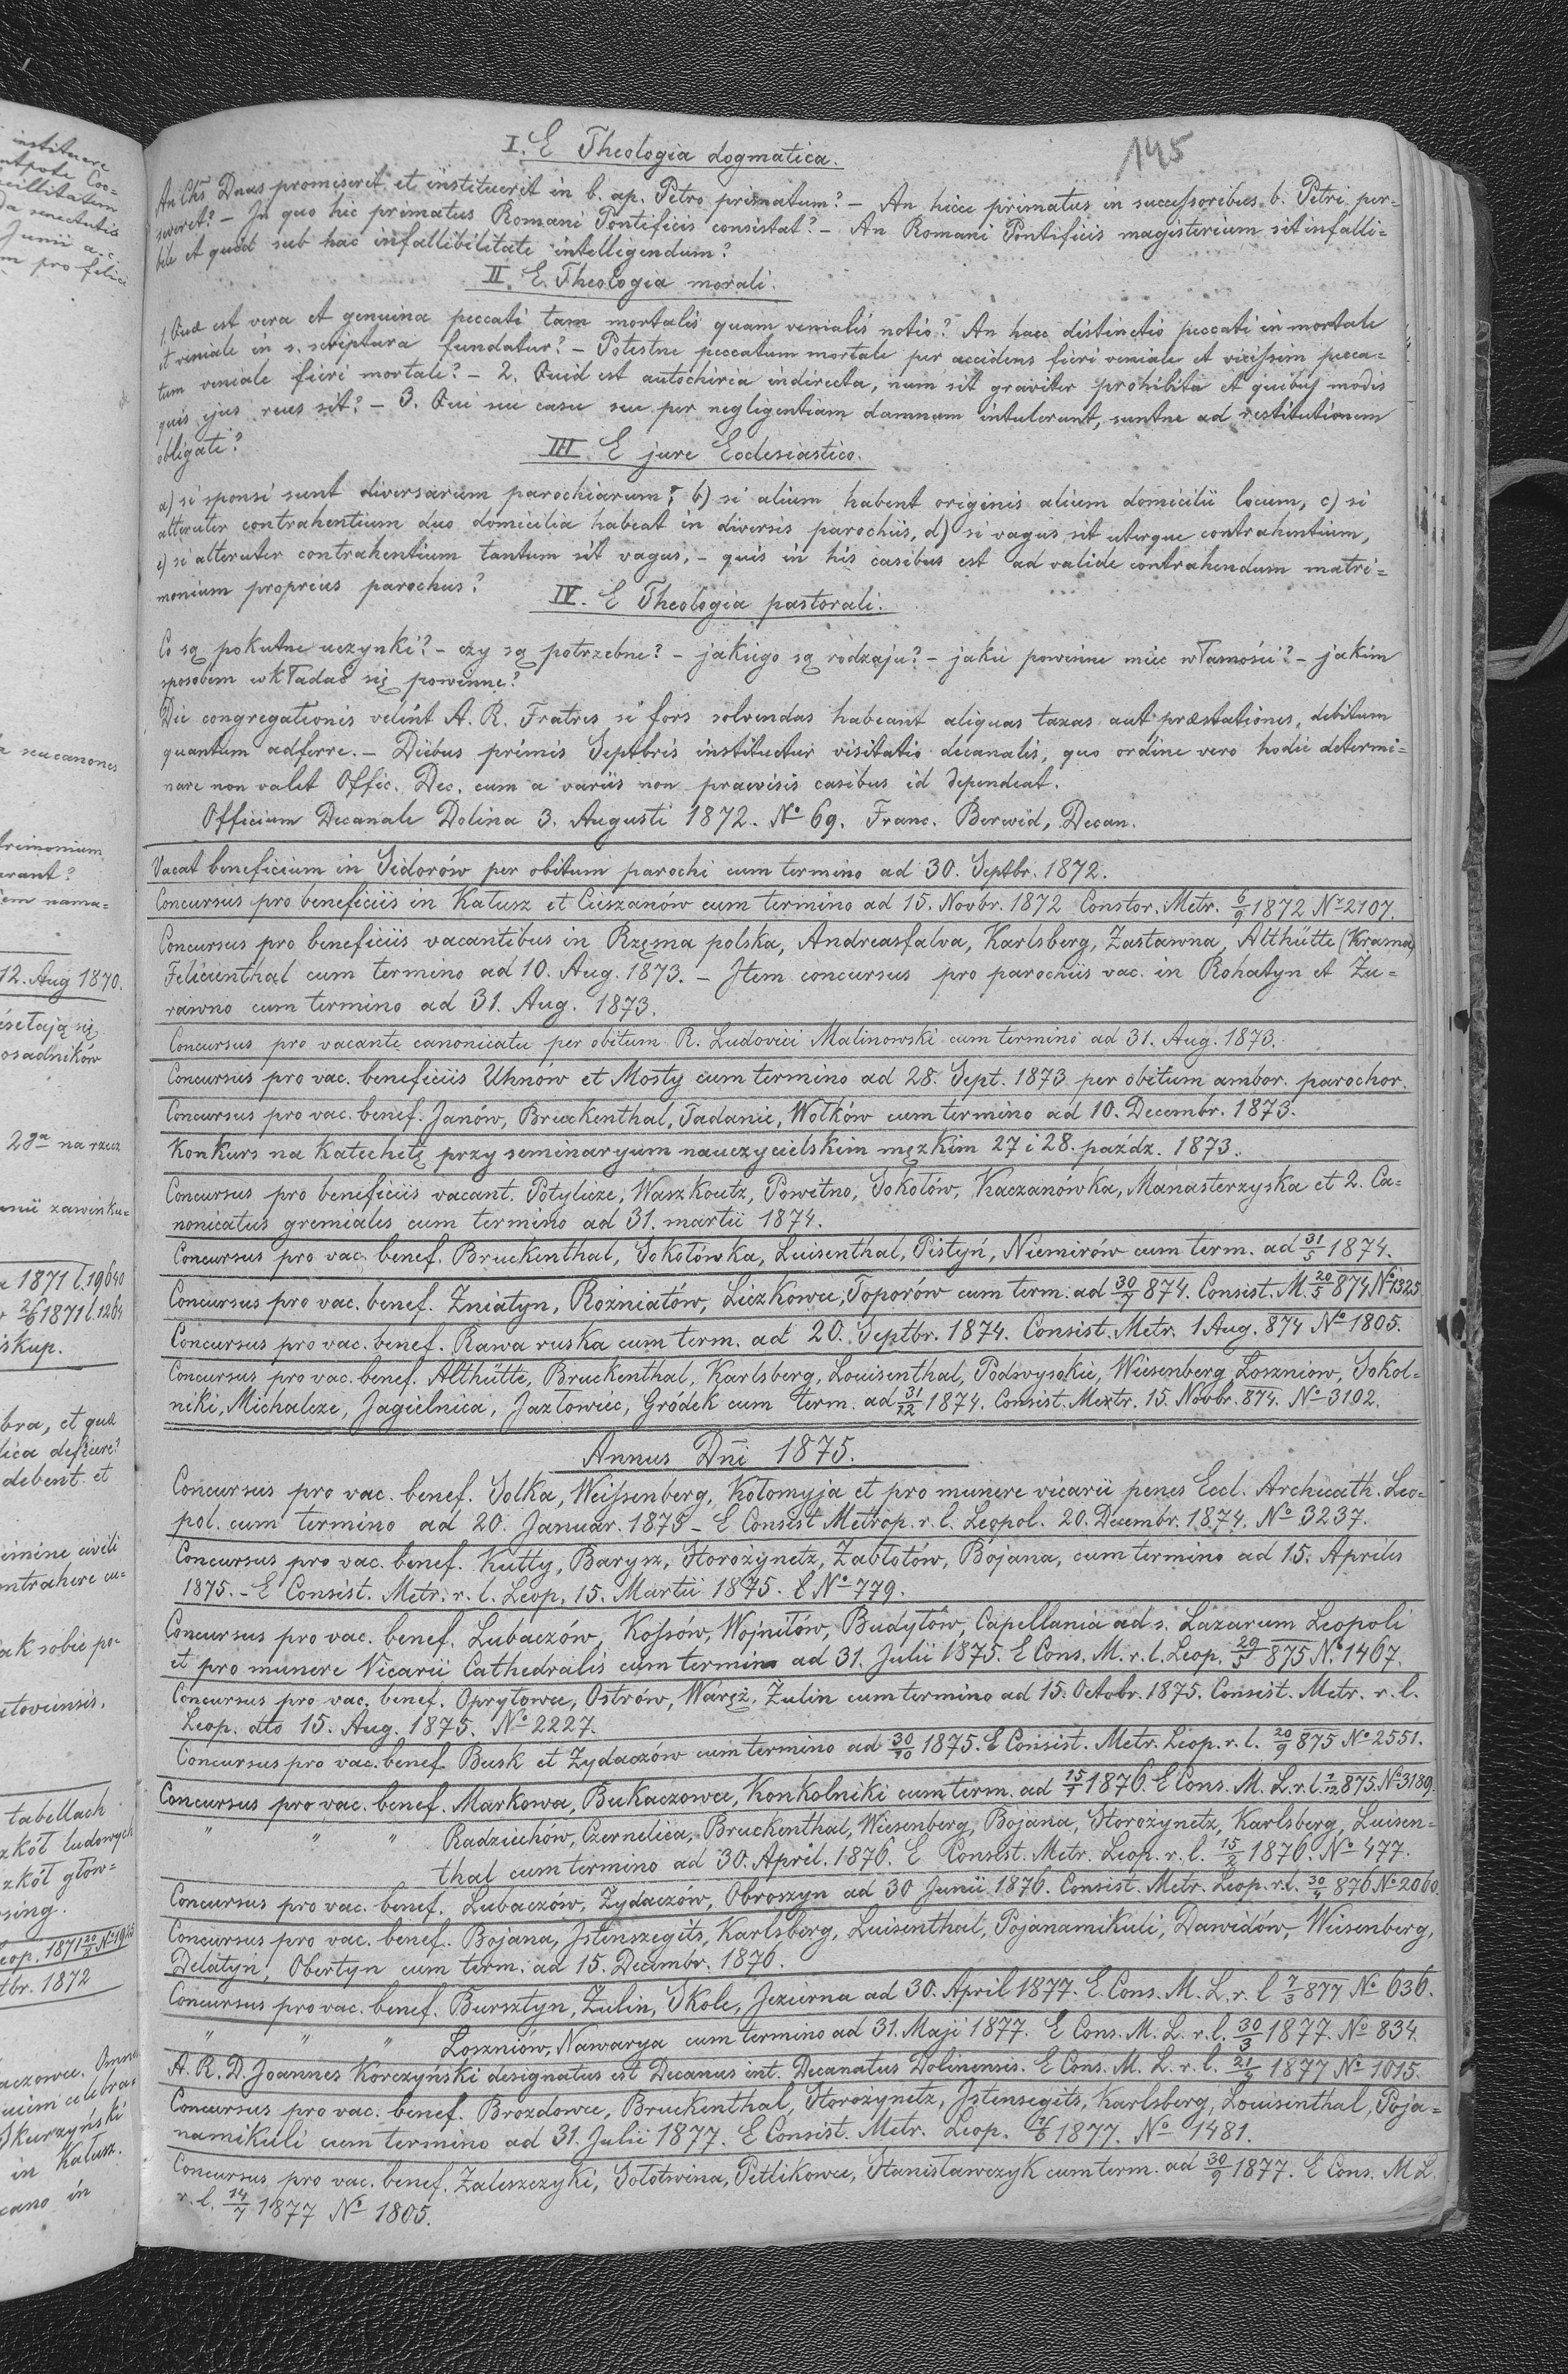 145
I. E Theologia dogmatica.
An Chs Dnus promiserit et instituerit in b. ap. Petro primatum? – An hicce primatus in successoribus b. Petri per-
severet? – In quo hic primatus Romani Pontificis consistat? – An Romani Pontificis magisterium sit infalli-
bile et quod sub hac infallibilitate intelligendum?
II. E. Theologia morali.
1. Quæ est vera et genuina peccati tam mortalis quam venialis notio? An haec distinctio peccati in mortale
et veniale in s. scriptura fundatur? – Potestne peccatum mortale per accidens fieri veniale et vicissim pecca-
tum veniale fieri mortale? – 2. Quid est autochiria indirecta, num sit graviter prohibita et quibus modis
quis ejus reus sit? – 3. Qui seu casu seu per negligentiam damnum intulerunt, suntne ad restitutionem
obligati?
III E jure Ecclesiastico.
a) si sponsi sunt diversarum parochiarum; b) si alium habent originis alium domicilii locum, c) si
alteruter contrahentium duo domicilia habeat in diversis parochiis, d) si vagus sit uterque contrahentium,
e) si alteruter contrahentium tantum sit vagus, – quis in his casibus est ad valide contrahendum matri-
monium proprius parochus?
IV. E Theologia pastorali.
Co są pokutne uczynki? – czy są potrzebne? – jakiego są rodzaju? – jakie powinne mieć własności? – jakim
sposobem wkładać się powinne?
Die congregationis velint A. R. Fratres si fors solvendas habeant aliquas taxas aut præstationes, debitum
quantum adferre. – Diebus primis Septbris instituetur visitatio decanalis, quo ordine vero hodie determi-
nare non valet Offic. Dec. cum a variis non praevisis casibus id dependeat.
Officium Decanale Dolina 3. Augusti 1872. No 69. Franc. Berwid, Decan.
Vacat beneficium in Sidorów per obitum parochi cum termino ad 30. Septbr. 1872.
Concursus pro beneficiis in Kałusz et Cieszanów cum termino ad 15. Novbr. 1872 Constor. Metr. 6/9 1872 Nr 2107.
Concursus pro beneficiis vacantibus in Rzęsna polska, Andreasfalva, Karlsberg, Zastawna, Althütte (Krasna)
Felicienthal cum termino ad 10. Aug. 1873. – Item concursus pro parochiis vac. in Rohatyn et Żu-
rawno cum termino ad 31. Aug. 1873.
Concursus pro vacante canonicatu per obitum R. Ludovici Malinowski cum termino ad 31. Aug. 1873.
Concursus pro vac. beneficiis Uhnów et Mosty cum termino ad 28. Sept. 1873 per obitum ambor. parochor.
Concursus pro vac. benef. Janów, Bruckenthal, Tadanie, Wołków cum termino ad 10. Decembr. 1873.
Konkurs na Katechetę przy seminaryum nauczycielskim męzkim 27 i 28. paźdz. 1873.
Concursus pro beneficiis vacant. Potylicze, Waszkoutz, Powitno, Sokołów, Kaczanówka, Manasterzyska et 2. Ca-
nonicatus gremiales cum termino ad 31. martii 1874.
Concursus pro vac. benef. Bruckenthal, Sokołówka, Luisenthal, Pistyń, Niemirów cum term. ad 31/5 1874.
Concursus pro vac. benef. Żniatyn, Rożniatów, Liczkowce, Toporów cum term. ad 30/7 874. Consist. M. 20/5 874 No 1325
Concursus pro vac. benef. Rawa ruska cum term. ad 20. Septbr. 1874. Consist. Metr. 1 Aug. 874 No 1805.
Concursus pro vac. benef. Althütte, Bruckenthal, Karlsberg, Louisenthal, Podwysokie, Wiesenberg Łoszniow, Sokol-
niki, Michalcze, Jagielnica, Jazłowiec, Gródek cum term. ad 31/12 1874. Consist. Metr. 15. Novbr. 874. No 3102.
Annus Dni 1875.
Concursus pro vac. benef. Solka, Weissenberg, Kołomyja et pro munere vicarii penes Eccl. Archicath. Leo-
pol. cum termino ad 20. Januar. 1875 – E Consist Metrop. r. l. Leopol. 20. Decembr. 1874. No 3237.
Concursus pro vac. benef. Kutty, Barysz, Storożynetz, Zabłotów, Bojana, cum termino ad 15. Aprilis
1875. – E Consist. Metr. r. l. Leop. 15. Martii 1875. No 779.
Concursus pro vac. benef. Lubaczów, Kossów, Wojniłów, Budyłów, Capellania ad s. Lazarum Leopoli
et pro munere Vicarii Cathedralis cum termino ad 31. Julii 1875. E Cons. M. r. l. Leop. 29/5 875 No 1467.
Concursus pro vac. benef. Opryłowce, Ostrów, Waręż, Żulin cum termino ad 15. Octobr. 1875. Consist. Metr. r. l.
Leop. dto 15. Aug. 1875. No 2227.
Concursus pro vac. benef. Busk et Żydaczów cum termino ad 30/10 1875. E Consist. Metr. Leop. r. l. 20/9 875 No 2551.
Concursus pro vac. benef. Markowa, Bukaczowce, Konkolniki cum term. ad 15/1 1876. E Cons. M. L. r. l. 2/12 875. No 3189.
" " " Radziechów, Czernelica, Bruckenthal, Wiesenberg, Bojana, Storożynetz, Karlsberg, Luisen-
thal cum termino ad 30. April. 1876. E Consist. Metr. Leop. r. l. 15/2 1876. No 477.
Concursus pro vac. benef. Lubaczów, Żydaczów, Obroszyn ad 30 Junii 1876. Consist. Metr. Leop. r. l. 30/4 876 No 2060.
Concursus pro vac. benef. Bojana, Istenszegits, Karlsberg, Luisenthal, Pojanamikuli, Dawidów, Wiesenberg,
Delatyn, Obertyn cum term. ad 15. Decembr. 1876.
Concursus pro vac. benef. Bursztyn, Żulin, Skole, Jezierna ad 30. April 1877. E. Cons. M. L. r. l 7/3 877 No 636.
" " " Łoszniów, Nawarya cum termino ad 31. Maji 1877. E Cons. M. L. r. l. 30/3 1877. No 834.
A. R. D. Joannes Korczyński designatus est Decanus int. Decanatus Dolinensis. E Cons. M. L. r. l. 21/4 1877 No 1015.
Concursus pro vac. benef. Brozdowce, Bruckenthal, Storożynetz, Istensegits, Karlsberg, Louisenthal, Poja-
namikuli cum termino ad 31. Julii 1877. E Consist. Metr. Leop. 1877. No 1481.
Concursus pro vac. benef. Zaleszczyki, Sołotwina, Petlikowce, Stanisławczyk cum term. ad 30/9 1877. E Cons. M L.
r. l. 14/7 1877 No 1805.